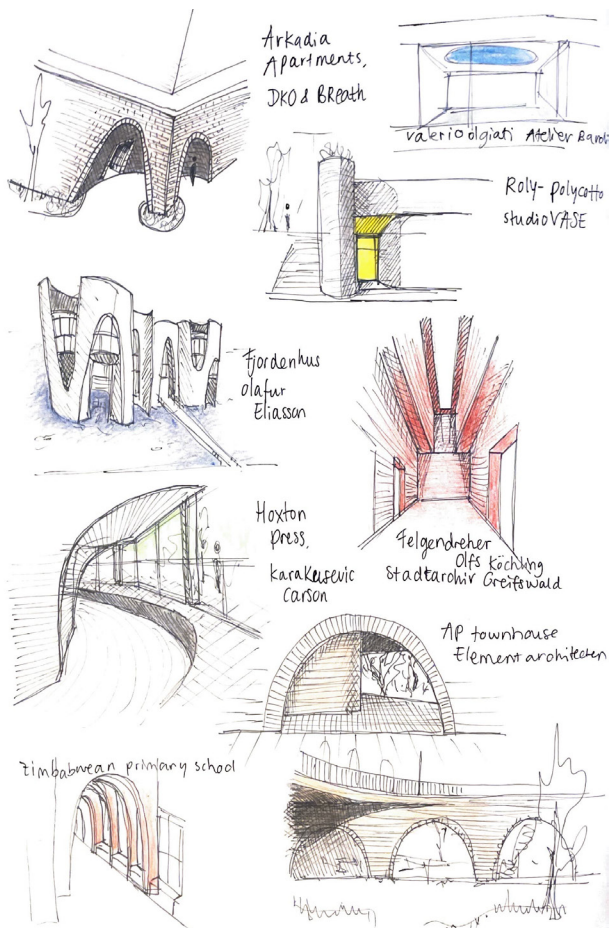 Arkadia
Apartments,
DKO & BReath
valerio olgiati Atelier Bardi
Roly-polycotto
studioVASE
Fjordenhus
olafur
Eliasson
Hoxton
press,
karakusevic
carson
Felgendreher
Olfs Köchling
Stadtarchiv Greifswald
AP townhouse
Element architecten
Zimbabwean primary school